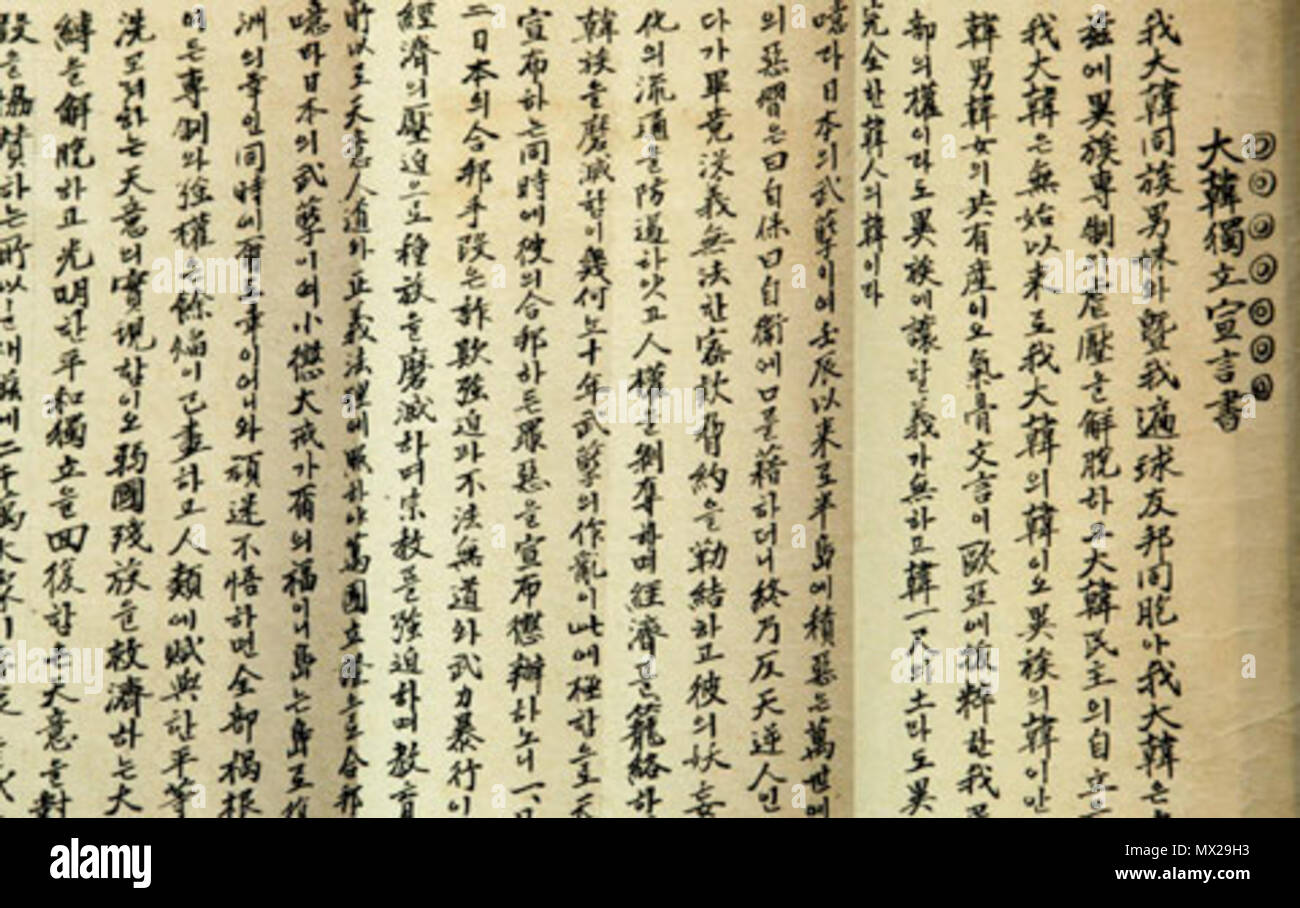 大韓獨立宣言書
我大韓同族男妹와曁我遍球友邦同胞아我大韓은
玆에異族專制의虐壓을解脫하고大韓民主의自立
我大韓은無始以來로我大韓의韓이오異族의韓이안
韓男韓女의共有産이오氣骨文言이歐亞에拔粹한我
部의權이라도異族에讓할義가無하고韓一尺의土라도異
完全한韓人의韓이라
噫라日本의武孼이여壬辰以來로半島에積惡은萬世에
의惡習은曰自保曰自衛에口를藉하더니終乃反天逆人인
다가畢竟沒義無法한密款脅約을勒結하고彼의妖妄
化의流通을防遏하얏고人權을剝奪하며經濟를籠絡하
韓族을磨滅함이幾何뇨十年武孼의作亂이此에極함으로天
宣布하는同時에彼의合邦하든罪惡을宣布懲辦하노니一、日
二日本의合邦手段은詐欺强迫과不法無道와武力暴行이
經濟의壓迫으로種族을磨滅하며宗敎를强迫하며敎育
所以로天意人道와正義法理에照하야萬國立證으로合邦
噫라日本의武孼이여小懲大戒가爾의福이니島는島로復
洲의幸인同時에爾도幸이어니와頑迷不悟하면全部禍根
이든專制와强權은餘焰이已盡하고人類에賦與한平等
洗코져하는天意의實現함이오弱國殘族을救濟하는大
縛을解脫하고光明한平和獨立을回復함은天意를對
協贊하는所以
alamy
Image ID: MX29H3
www.alamy.com